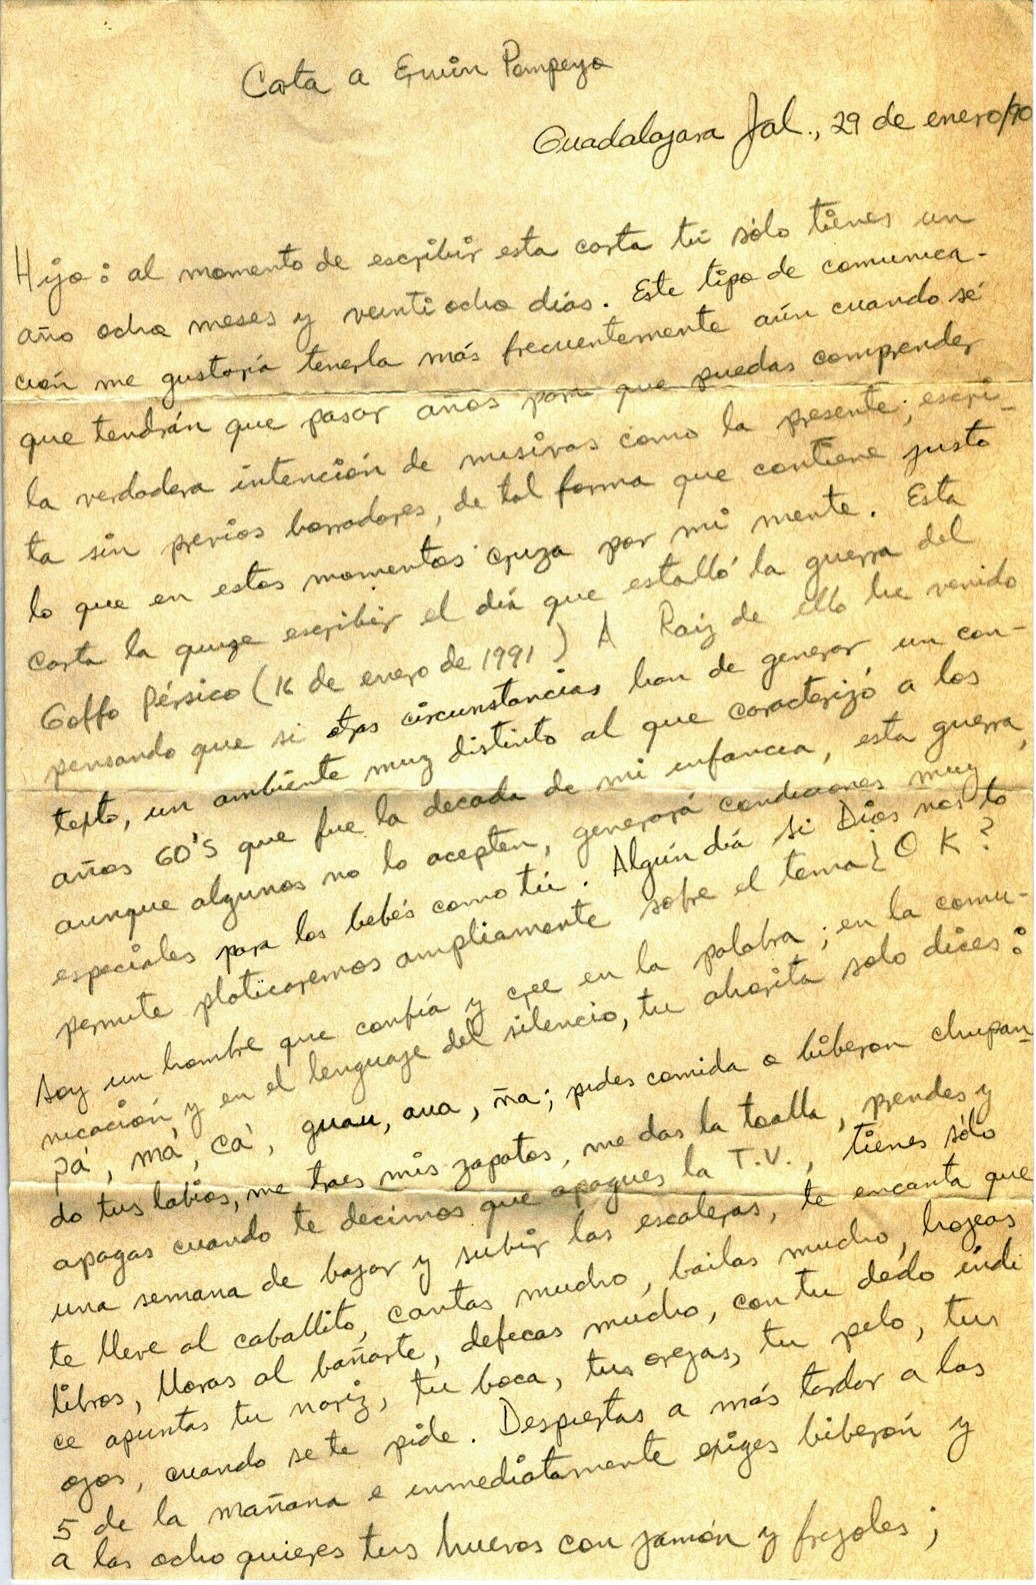 Carta a Erwin Pompeyo
Guadalajara Jal., 29 de enero/90
Hijo: al momento de escribir esta carta tú sólo tienes un
año ocho meses y veintiocho días. Este tipo de comunica-
ción me gustaría tenerla más frecuentemente aún cuando sé
que tendrán que pasar años para que puedas comprender
la verdadera intención de misivas como la presente; escri-
ta sin previos borradores, de tal forma que contiene justo
lo que en estos momentos cruza por mi mente. Esta
carta la quize escribir el día que estalló la guerra del
Golfo Pérsico (16 de enero de 1991) A Raíz de ello he venido
pensando que si otras circunstancias han de generar un con-
texto, un ambiente muy distinto al que caracterizó a los
años 60's que fue la decada de mi infancia, esta guerra,
aunque algunos no lo acepten, generará condiciones muy
especiales para los bebés como tú. Algún día si Dios nos lo
permite platicaremos ampliamente sobre el tema ¿OK?
Soy un hombre que confía y cree en la palabra; en la comu-
nicación, y en el lenguaje del silencio, tu ahorita solo dices:
pá, má, cá, guau, aua, ña; pides comida o biberon chupan-
do tus labios, me traes mis zapatos, me das la toalla, prendes y
apagas cuando te decimos que apagues la T.V., tienes sólo
una semana de bajar y subir las escaleras, te encanta que
te lleve al caballito, cantas mucho, bailas mucho, hojeas
libros, lloras al bañarte, defecas mucho, con tu dedo índi
ce apuntas tu nariz, tu boca, tus orejas, tu pelo, tus
ojos, cuando se te pide. Despiertas a más tardar a las
5 de la mañana e inmediatamente exiges biberón y
a las ocho quieres tus huevos con jamón y frijoles;